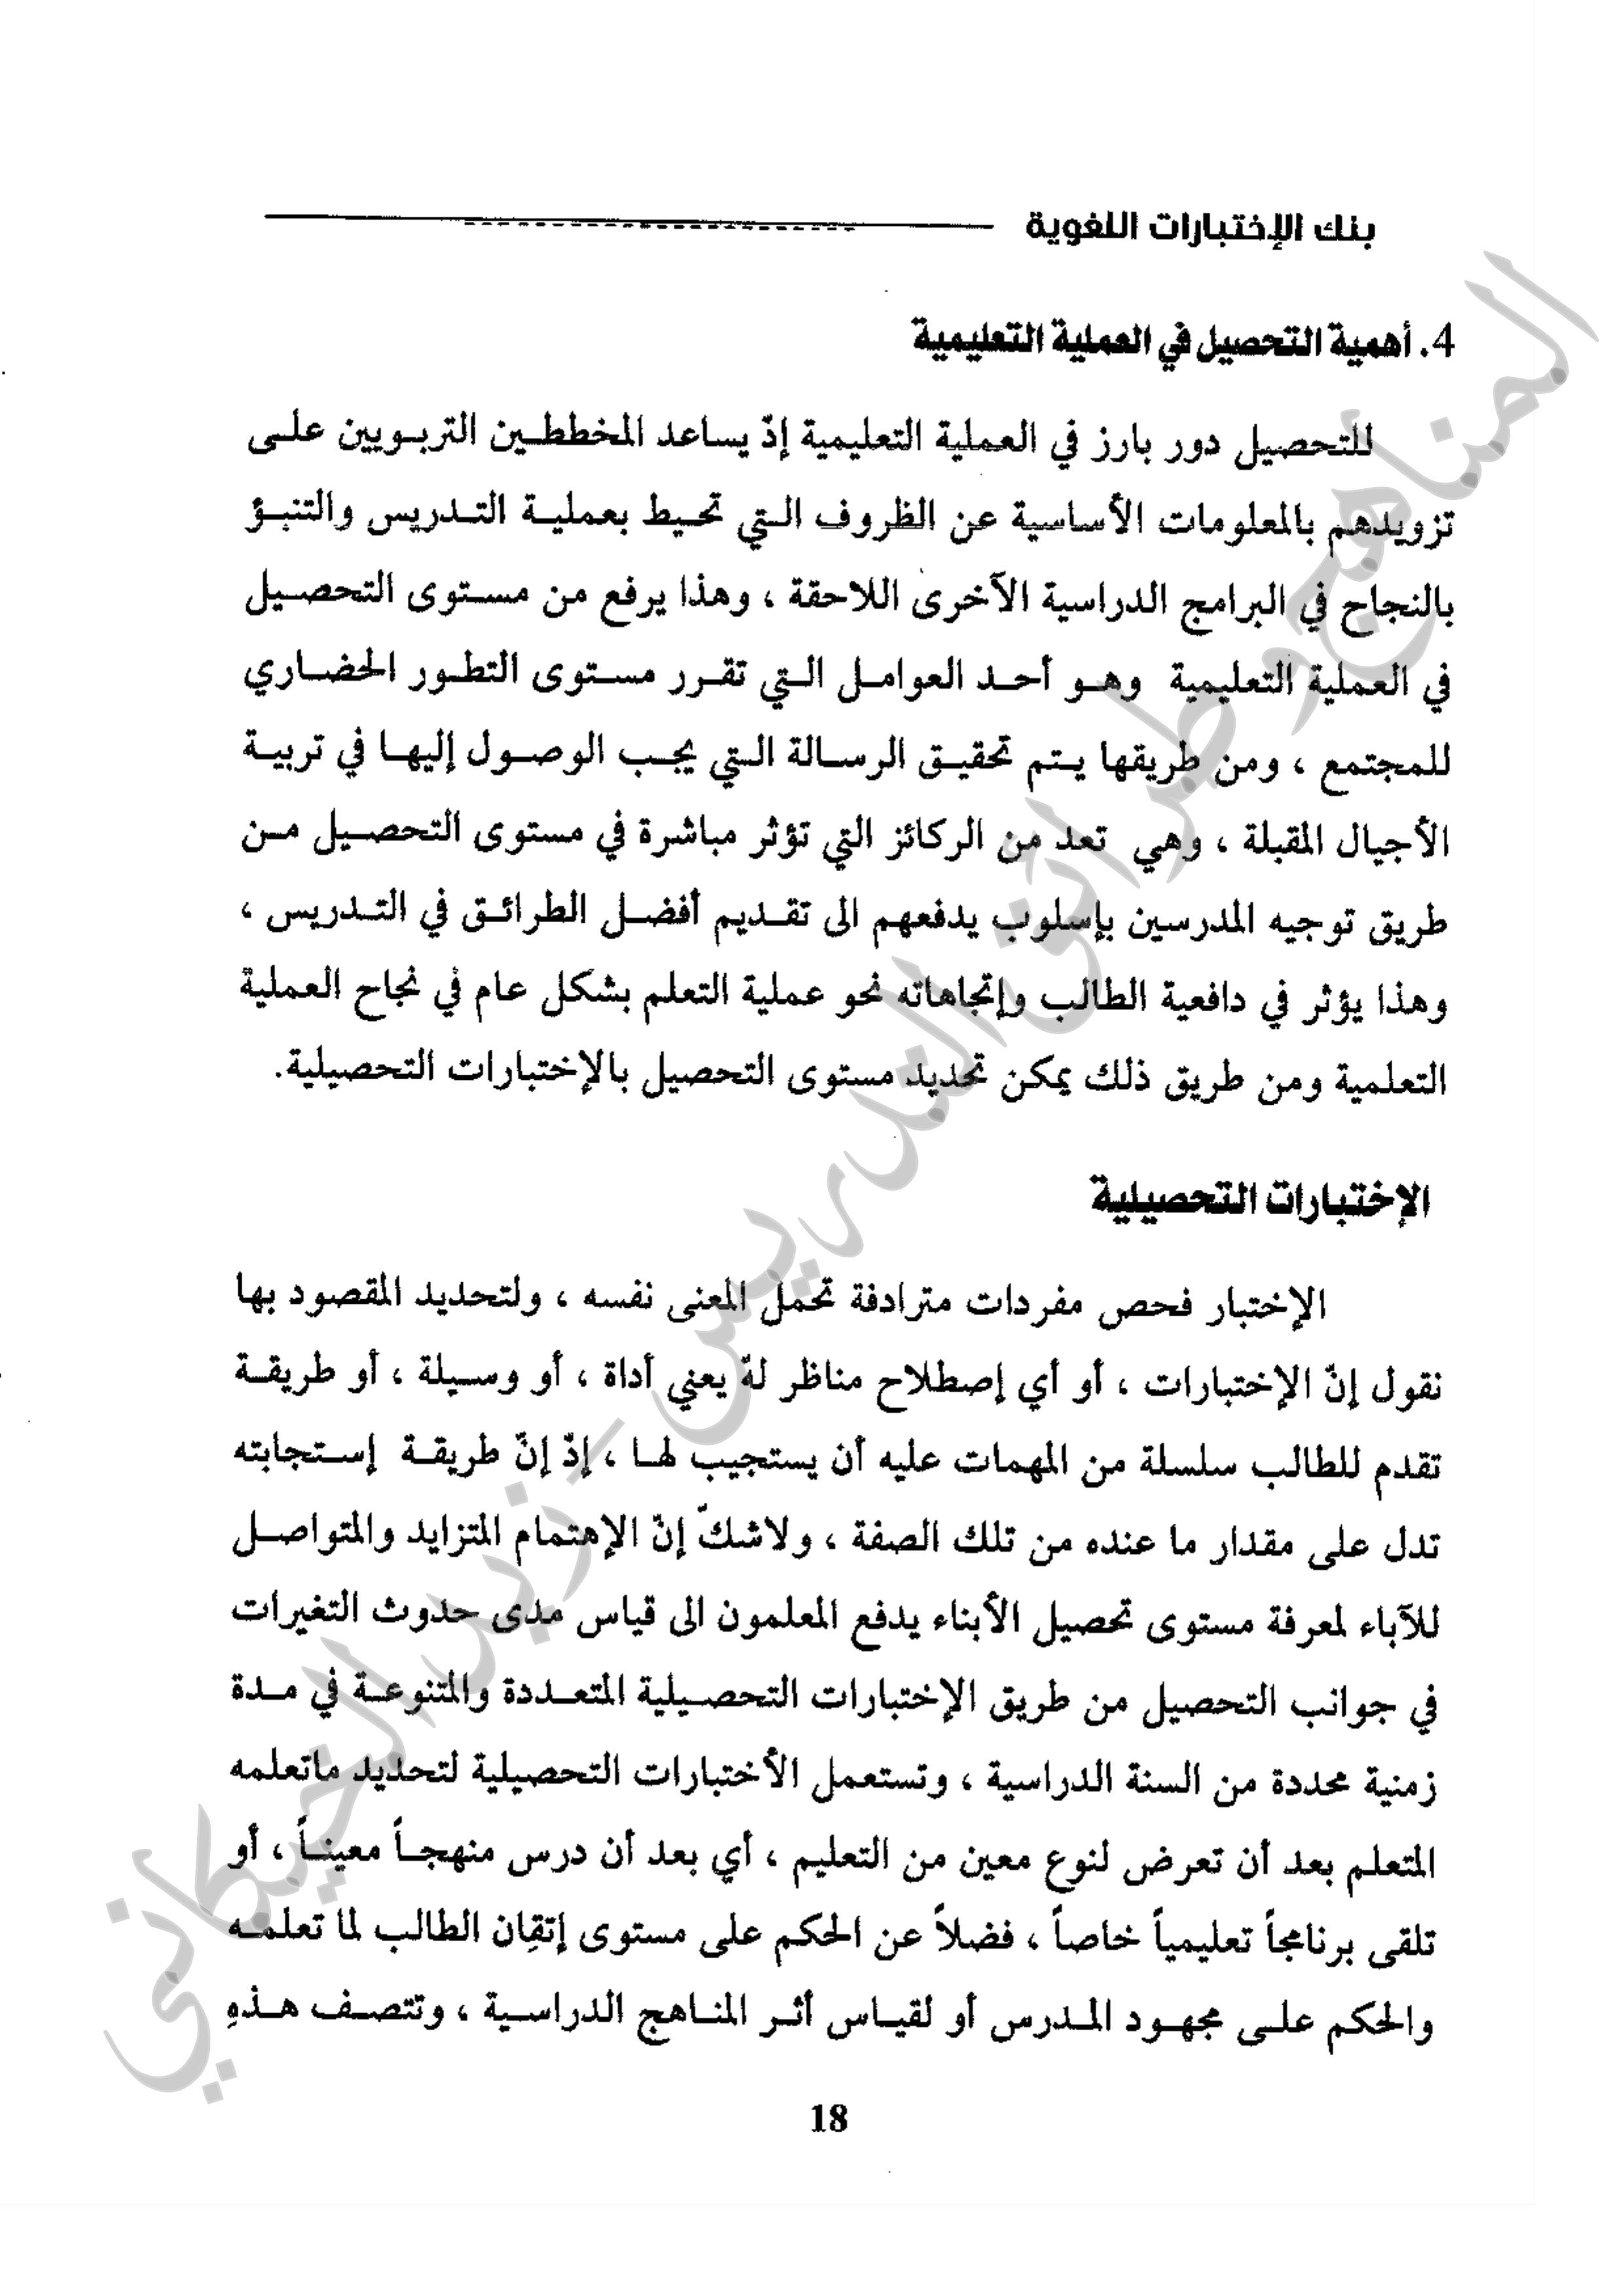 بنك الإختبارات اللغوية
4. أهمية التحصيل في العملية التعليمية
للتحصيل دور بارز في العملية التعليمية إذّ يساعد المخططين التربويين على
تزويدهم بالمعلومات الأساسية عن الظروف التي تحيط بعملية التدريس والتنبؤ
بالنجاح في البرامج الدراسية الآخرى اللاحقة ، وهذا يرفع من مستوى التحصيل
في العملية التعليمية وهو أحد العوامل التي تقرر مستوى التطور الحضاري
للمجتمع ، ومن طريقها يتم تحقيق الرسالة التي يجب الوصول إليها في تربية
الأجيال المقبلة ، وهي تعد من الركائز التي تؤثر مباشرة في مستوى التحصيل من
طريق توجيه المدرسين بإسلوب يدفعهم الى تقديم أفضل الطرائق في التدريس ،
وهذا يؤثر في دافعية الطالب وإتجاهاته نحو عملية التعلم بشكل عام في نجاح العملية
التعلمية ومن طريق ذلك يمكن تحديد مستوى التحصيل بالإختبارات التحصيلية.
الإختبارات التحصيلية
الإختبار فحص مفردات مترادفة تحمل المعنى نفسه ، ولتحديد المقصود بها
نقول إنّ الإختبارات ، أو أي إصطلاح مناظر لهّ يعني أداة ، أو وسيلة ، أو طريقة
تقدم للطالب سلسلة من المهمات عليه أن يستجيب لها ، إذّ إنّ طريقة إستجابته
تدل على مقدار ما عنده من تلك الصفة ، ولاشكّ إنّ الإهتمام المتزايد والمتواصل
للآباء لمعرفة مستوى تحصيل الأبناء يدفع المعلمون الى قياس مدى حدوث التغيرات
في جوانب التحصيل من طريق الإختبارات التحصيلية المتعددة والمتنوعة في مدة
زمنية محددة من السنة الدراسية ، وتستعمل الأختبارات التحصيلية لتحديد ماتعلمه
المتعلم بعد أن تعرض لنوع معين من التعليم ، أي بعد أن درس منهجاً معيناً ، أو
تلقى برنامجاً تعليمياً خاصاً ، فضلاً عن الحكم على مستوى إتقِان الطالب لما تعلمه
والحكم على مجهود المدرس أو لقياس أثر المناهج الدراسية ، وتتصف هذهِ
18
المناهج وطرائق التدريس - زيد الخيكاني